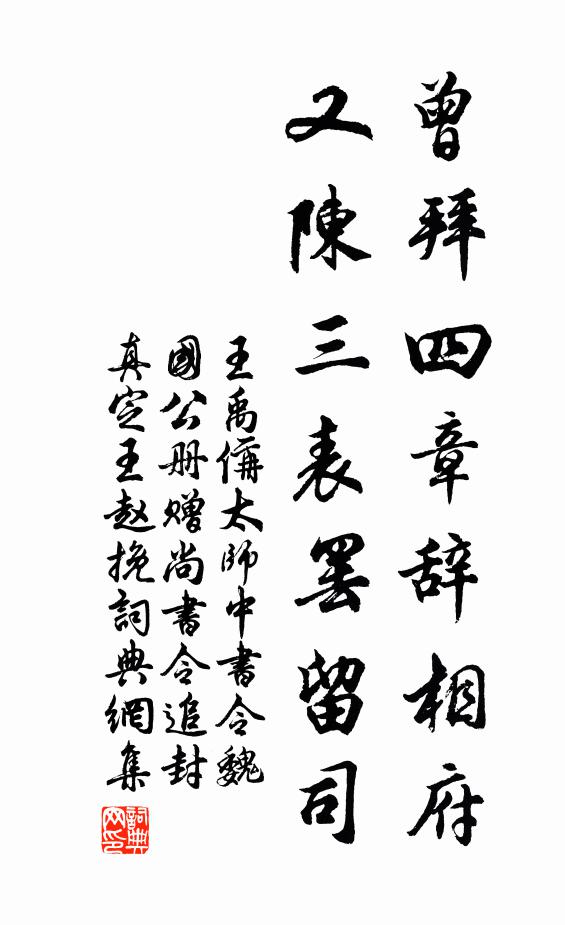 曾拜四章辞相府
又陳三表罢留司
王禹偁太师中書令魏
國公册赠尚書令追封
真定王赵挽詞典網集
詞典网印